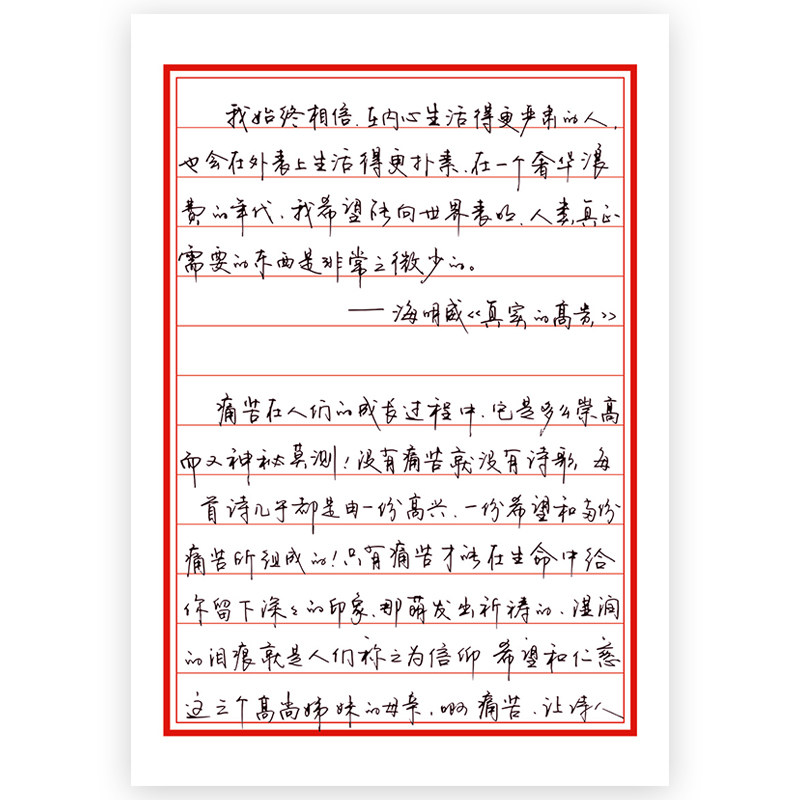 我始终相信,在内心生活得更严肃的人,
也会在外表上生活得更扑素,在一个奢华浪
费的年代,我希望能向世界表明,人类真正
需要的东西是非常之微少的。
——海明威《真实的高贵》
痛苦在人们的成长过程中,它是多么崇高
而又神秘莫测!没有痛苦就没有诗歌,每
首诗几乎都是由一份高兴、一份希望和两份
痛苦所组成的!只有痛苦才能在生命中给
你留下深深的印象,那萌发出祈祷的、湿润
的泪痕就是人们称之为信仰 希望和仁慈
这三个高尚姊妹的母亲,啊 痛苦,让诗人